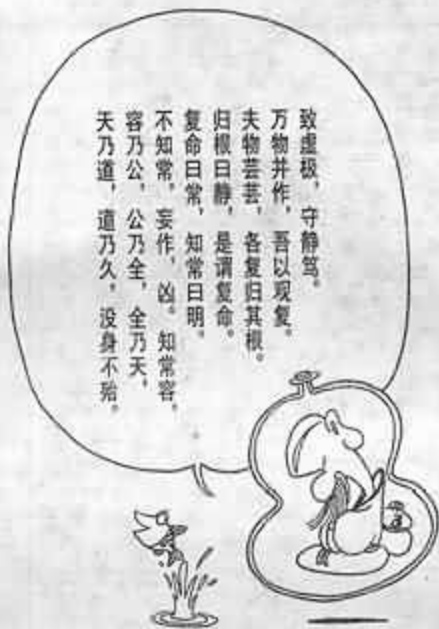 致虚极，守静笃。
万物并作，吾以观复。
夫物芸芸，各复归其根。
归根曰静，是谓复命。
复命曰常，知常曰明。
不知常，妄作，凶。知常容，
容乃公，公乃全，全乃天，
天乃道，道乃久，没身不殆。